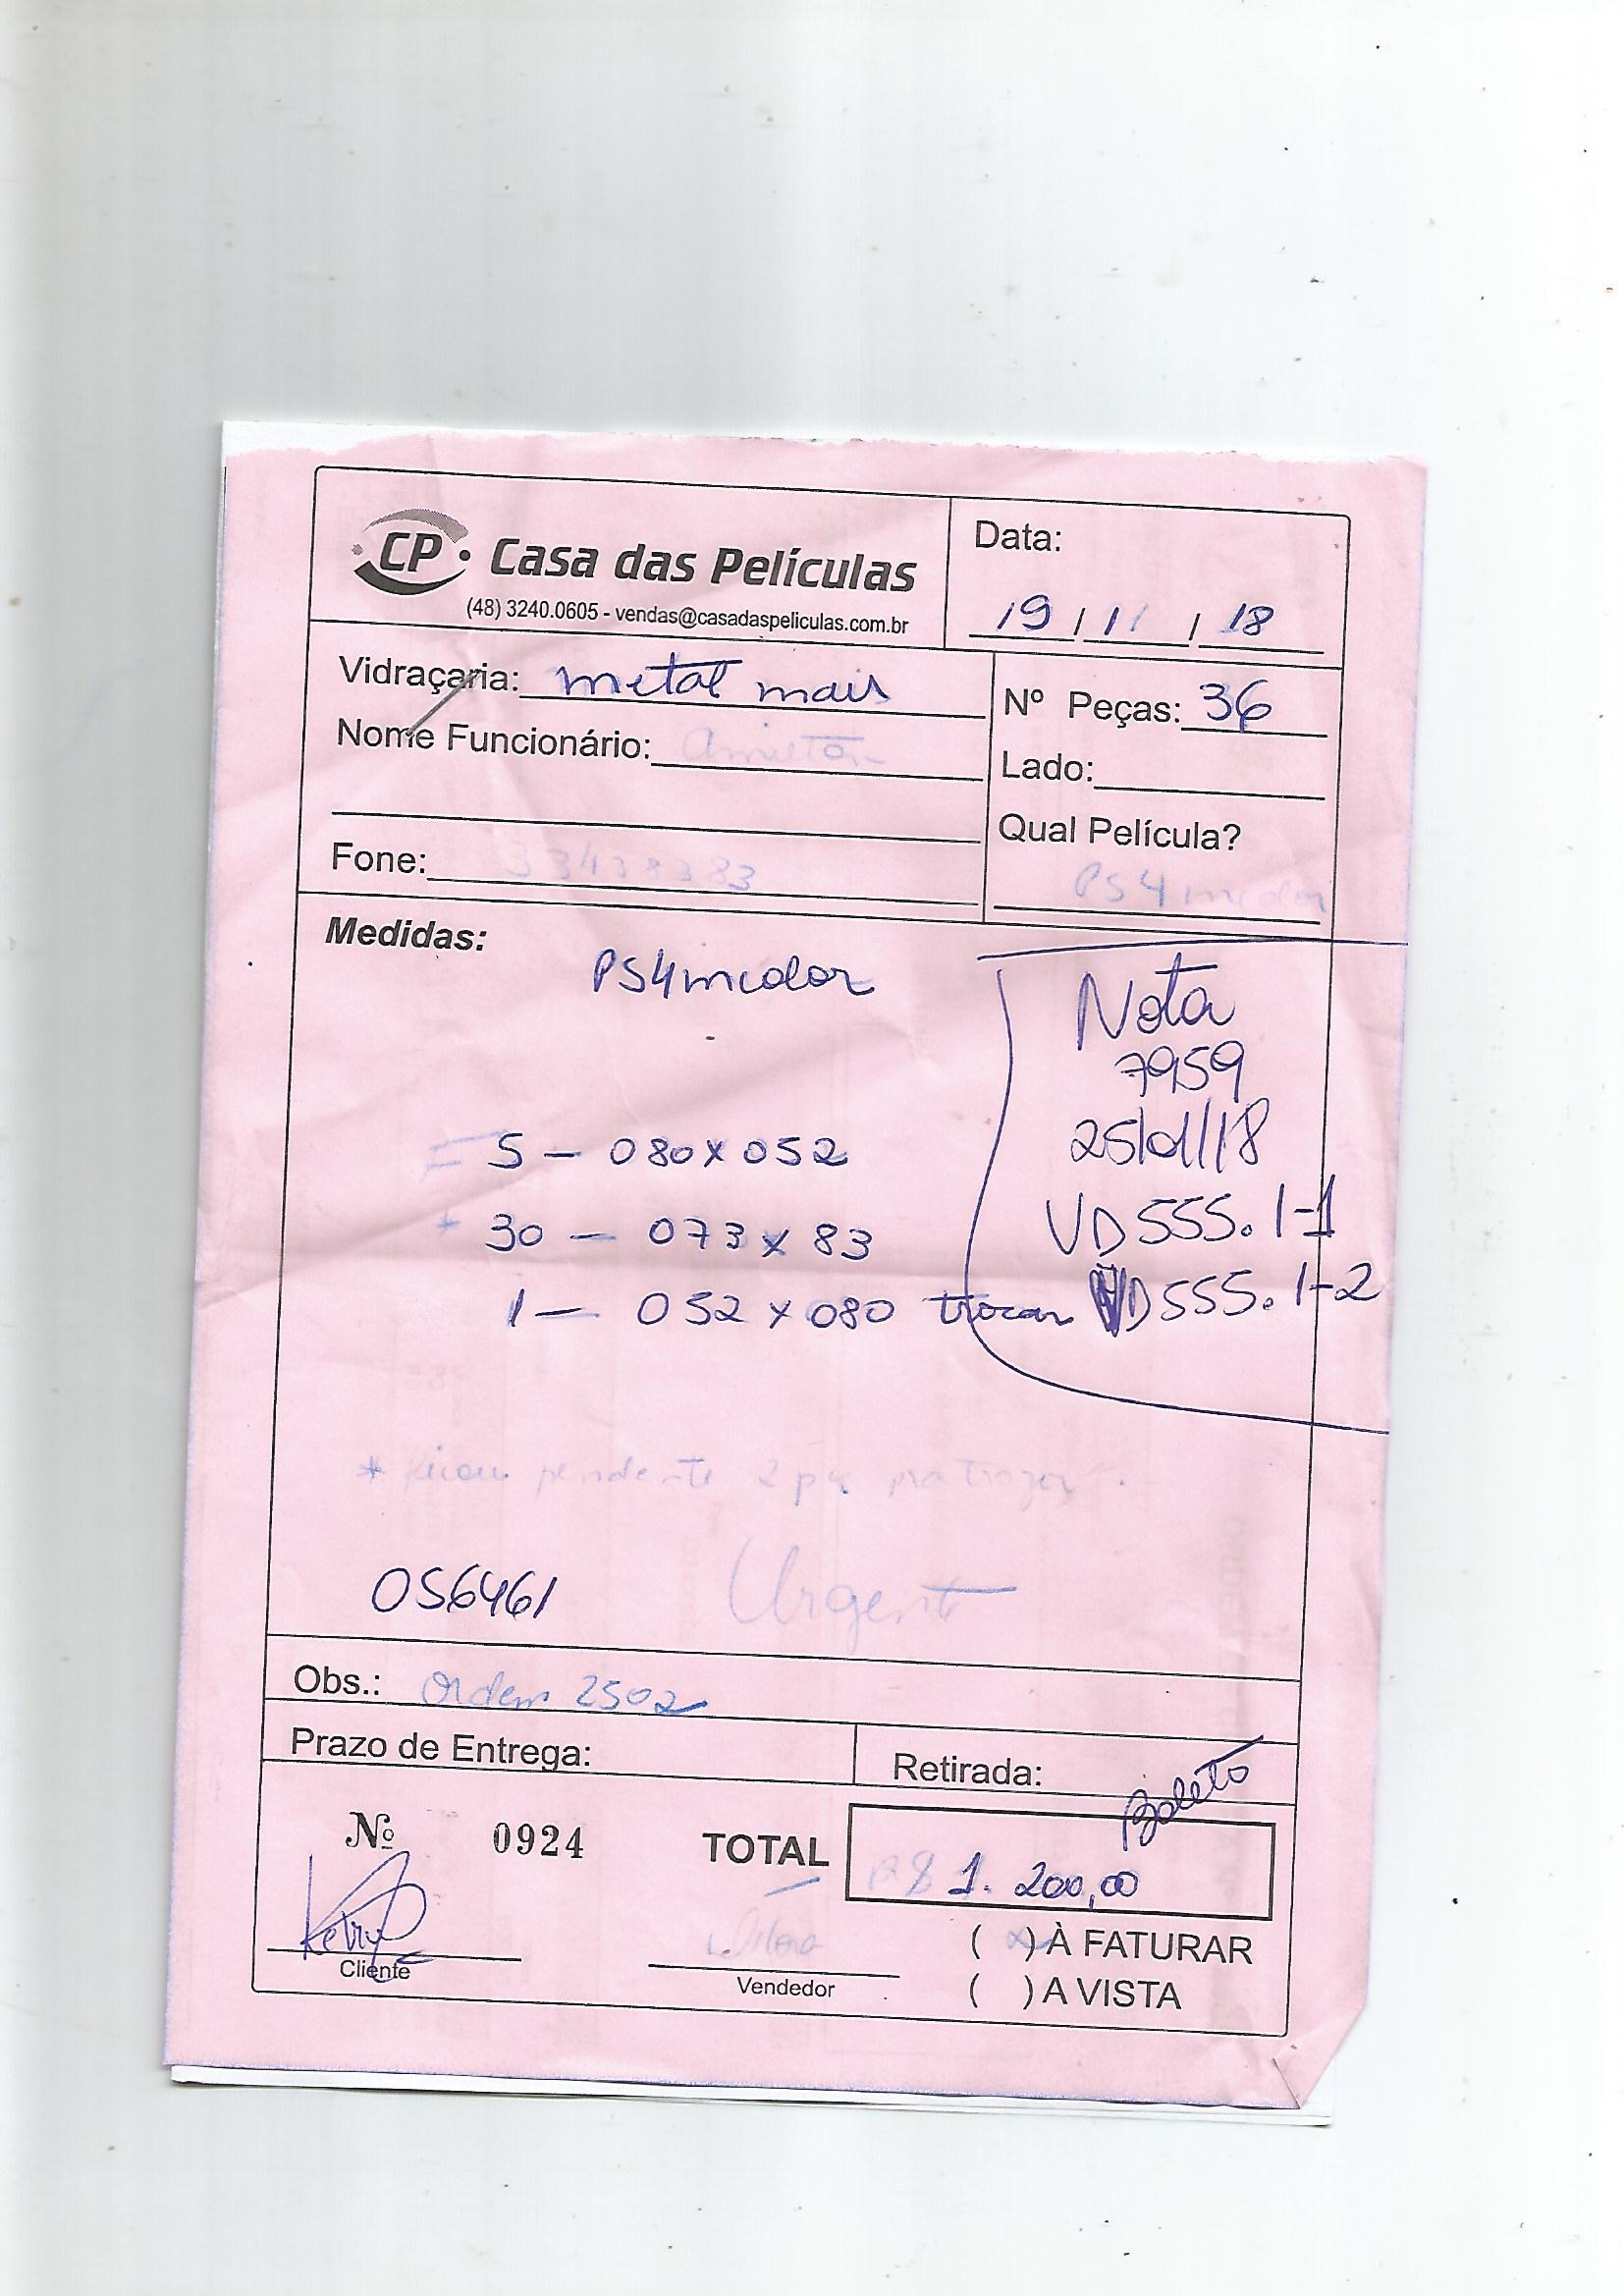 CP Casa das Películas
(48) 3240.0605 - vendas@casadaspeliculas.com.br
Data:
19 / 11 / 18
Vidraçaria: metal mais
Nº Peças: 36
Nome Funcionário:
Lado:
Qual Película?
PS4 incolor
Fone: 33438383
Medidas:
PS4 incolor
5 - 080 x 052
* 30 - 073 x 83
1 - 052 x 080 trocar
Nota
7959
VD555.1-1
VD555.1-2
* ficou pendente 2 pra trazer.
OS6461
Urgente
Obs.: Ordem 2502
Prazo de Entrega:
Retirada:
Boleto
Nº 0924
TOTAL
R$ 1.200,00
Cliente
Vendedor
( x ) À FATURAR
( ) A VISTA